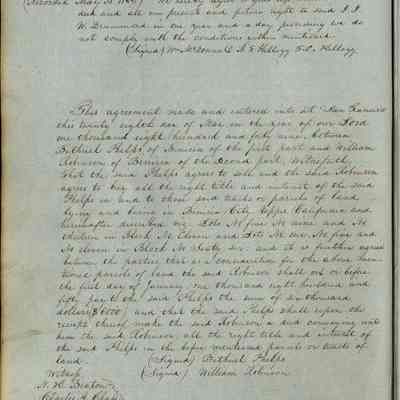 (Recorded May 31 1849) We hereby agree to give up
deed and all our present and future right to said I. I.
W. Drummond in one year and a day providing we do
not comply with the conditions within mentioned.
(Signed) Wm McDonald
This agreement made and entered into at San Francisco
this twenty eighth day of May in the year of our Lord
one thousand eight hundred and forty nine between
Bethuel Phelps of Benicia of the first part and William
Robinson of Benicia of the Second part, Witnesseth
that the said Phelps agrees to sell and the said Robinson
agrees to buy all the right title and interest of the said
Phelps in and to those said tracts or parcels of land
lying and being in Benicia City Upper California and
hereinafter described viz Lots No five No nine and No
thirteen in Block No Eleven and Lots No one No five and
No eleven in Block No ninety six: and it is further agreed
between the parties that as a consideration for the above men-
tioned parcels of land the said Robinson shall on or before
the first day of January one thousand eight hundred and
fifty pay to the said Phelps the sum of six thousand
dollars ($6000) and that the said Phelps shall upon the
receipt thereof make the said Robinson a deed conveying unto
him the said Robinson all the right title and interest of
the said Phelps in the before mentioned parcels or tracts of
land. (Signed) Bethuel Phelps
Witness (Signed) William Robinson
N. H. Beaton
Charles A.